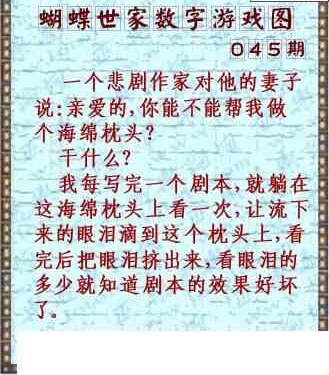 蝴蝶世家数字游戏图
045期
一个悲剧作家对他的妻子
说:亲爱的,你能不能帮我做
个海绵枕头?
干什么?
我每写完一个剧本,就躺在
这海绵枕头上看一次,让流下
来的眼泪滴到这个枕头上,看
完后把眼泪挤出来,看眼泪的
多少就知道剧本的效果好坏
了。